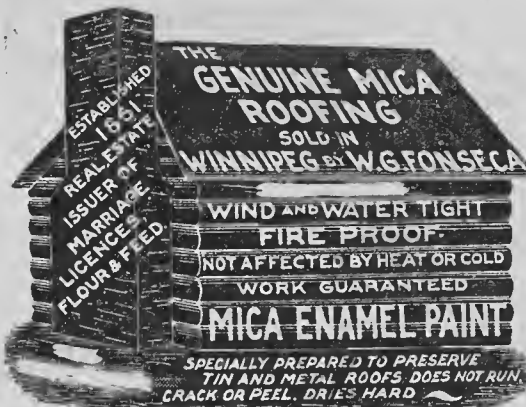 ESTABLISHED
1661
REAL ESTATE
ISSUER OF
MARRIAGE
LICENCES,
FLOUR & FEED.
THE
GENUINE MICA
ROOFING
SOLD IN
WINNIPEG BY W.G. FONSECA
WIND AND WATER TIGHT
FIRE PROOF.
NOT AFFECTED BY HEAT OR COLD
WORK GUARANTEED
MICA ENAMEL PAINT
SPECIALLY PREPARED TO PRESERVE
TIN AND METAL ROOFS. DOES NOT RUN,
CRACK OR PEEL. DRIES HARD